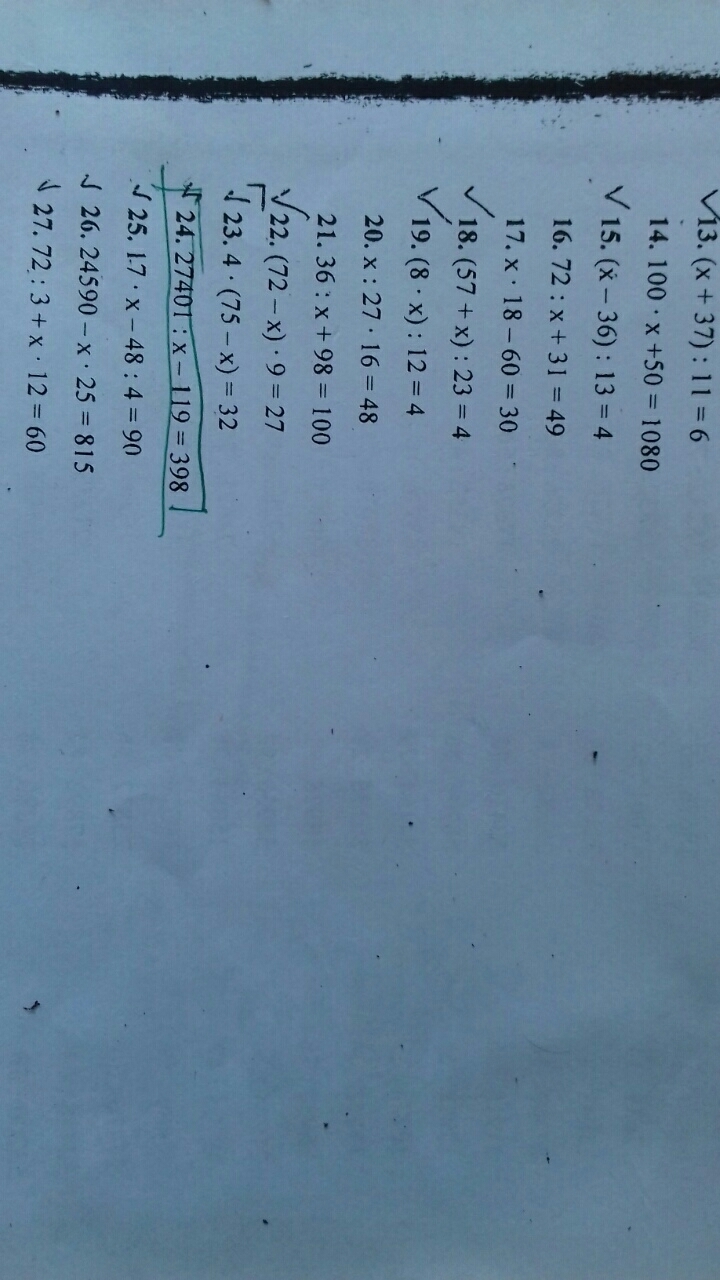 13. (x + 37) : 11 = 6
14. 100 · x +50 = 1080
15. (x – 36) : 13 = 4
16. 72 : x + 31 = 49
17. x · 18 – 60 = 30
18. (57 + x) : 23 = 4
19. (8 · x) : 12 = 4
20. x : 27 · 16 = 48
21. 36 : x + 98 = 100
22. (72 – x) · 9 = 27
23. 4 · (75 – x) = 32
24. 27401 : x – 119 = 398
25. 17 · x – 48 : 4 = 90
26. 24590 – x · 25 = 815
27. 72 : 3 + x · 12 = 60